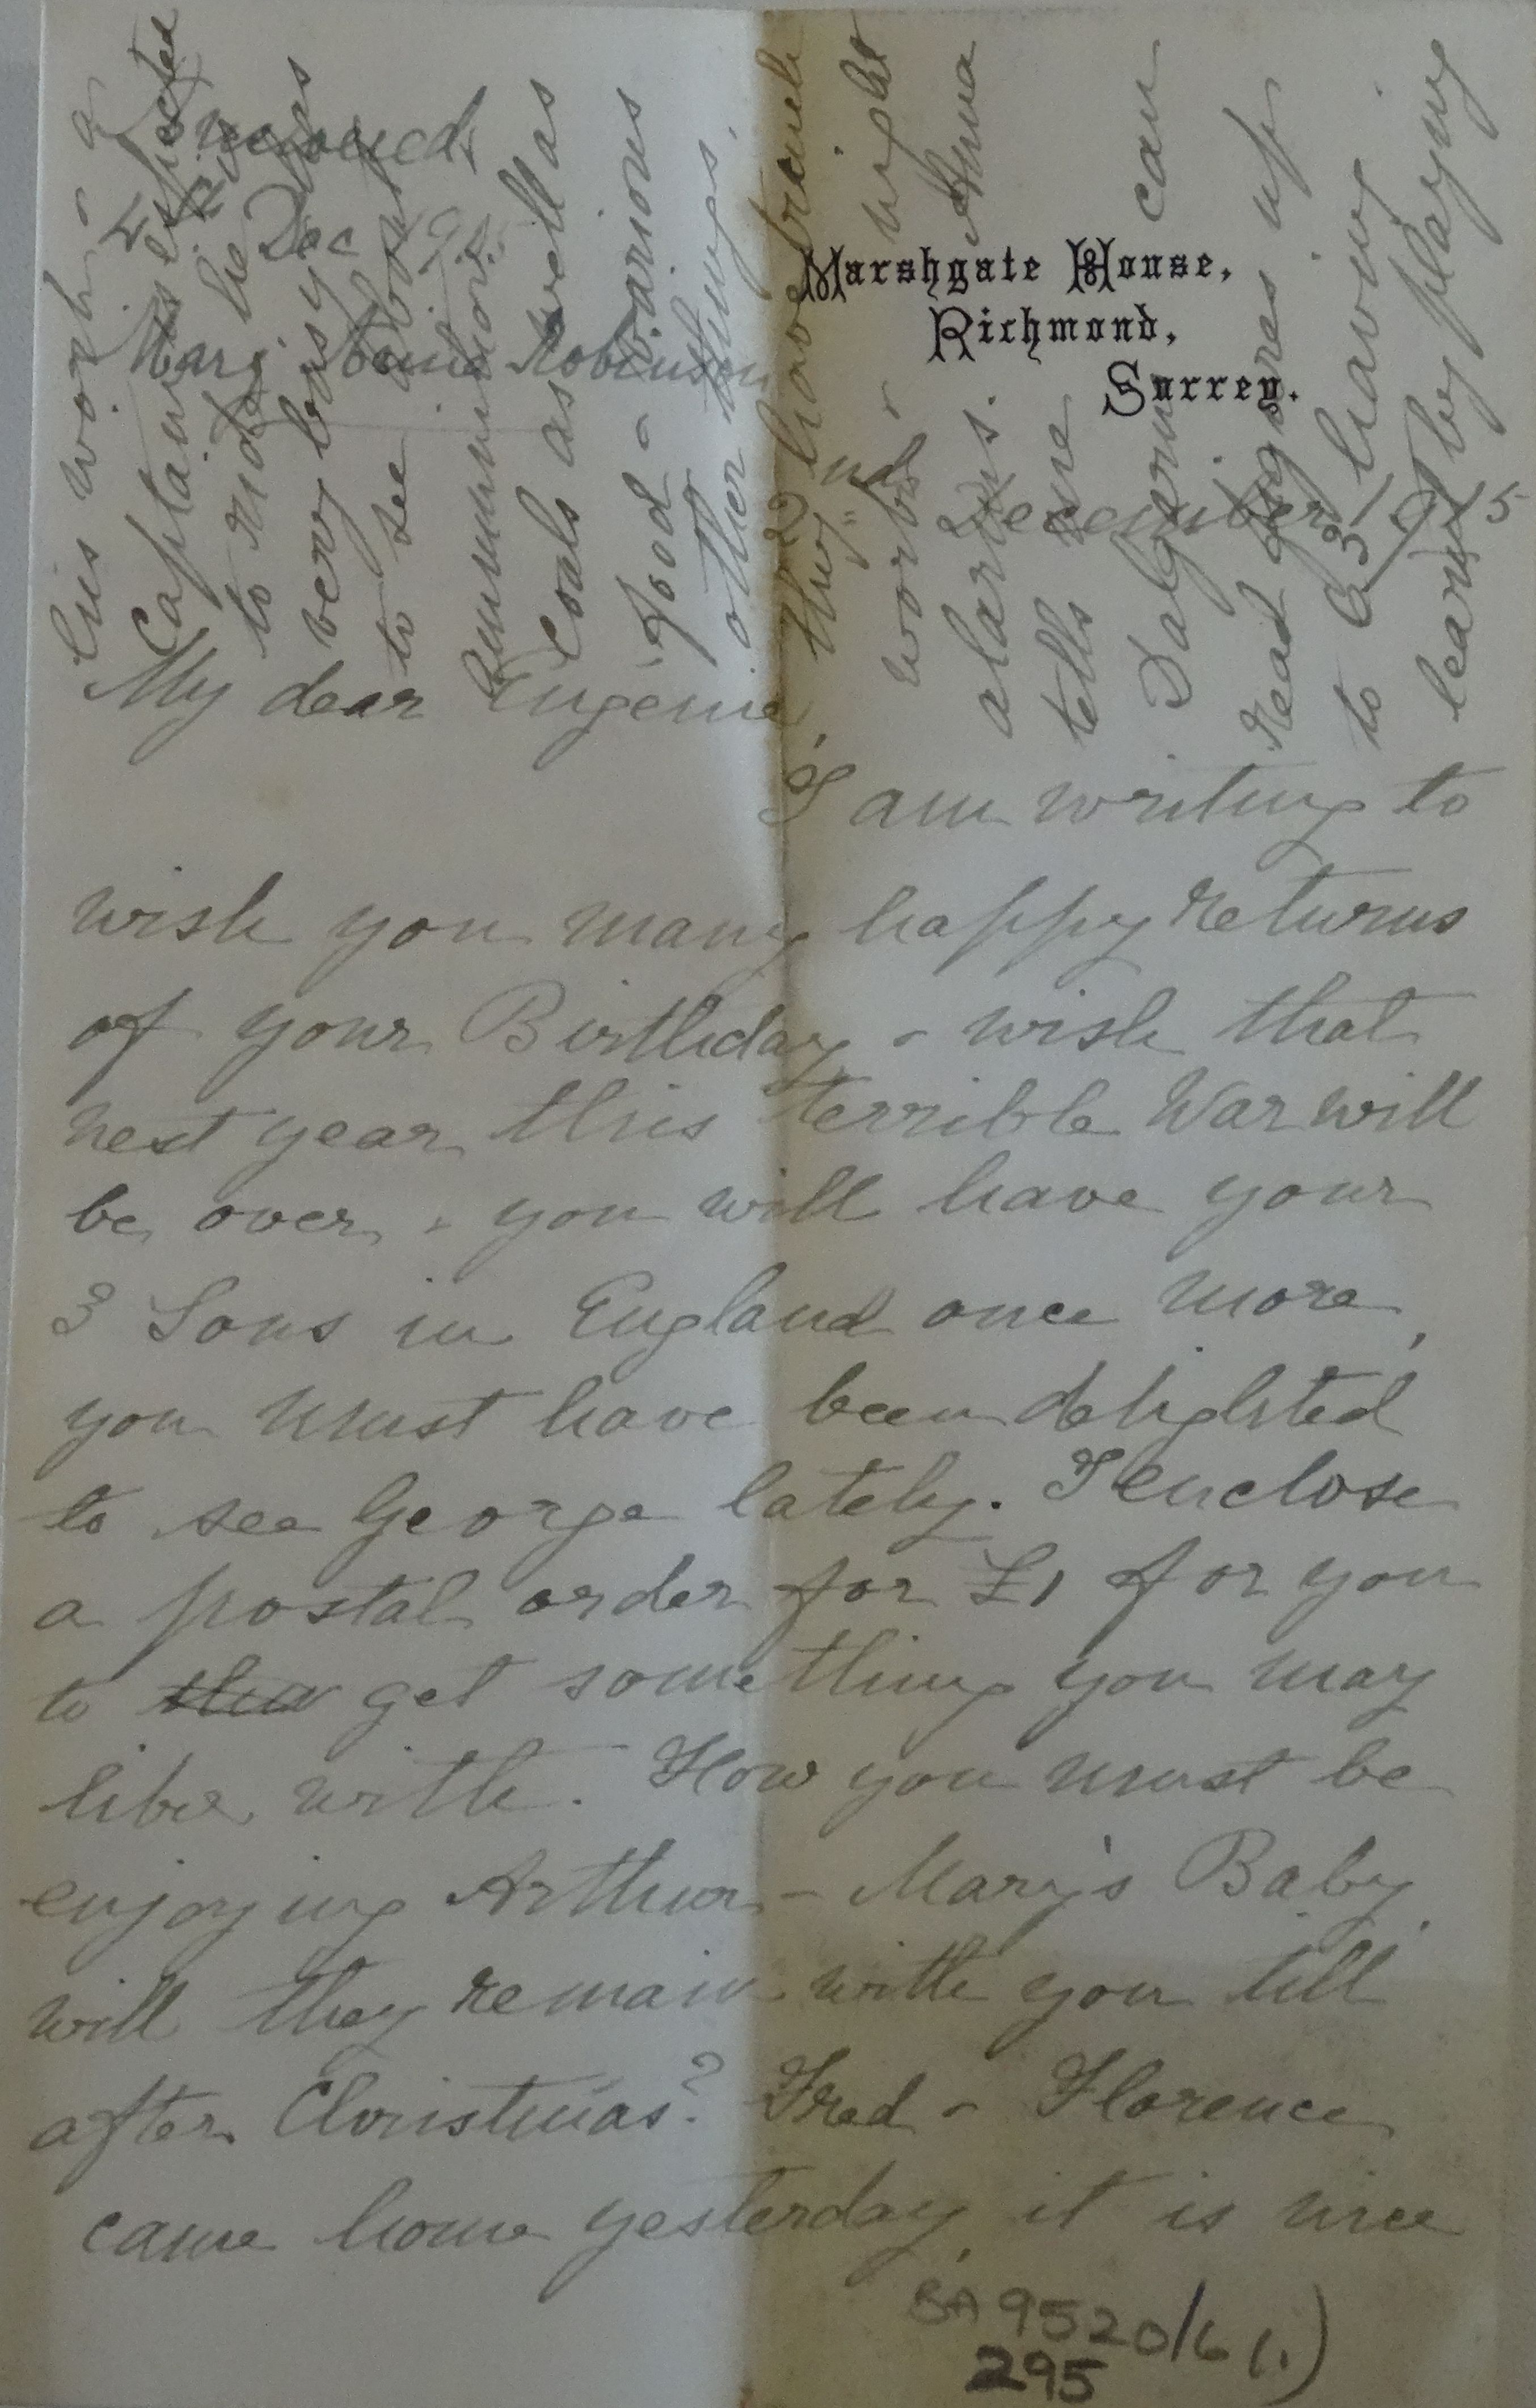 Marshgate House,
Richmond,
Surrey.
Dec
Mary Robinson
2nd December / 15
My dear Eugénie,
I am writing to
wish you many happy returns
of your Birthday - wish that
next year this terrible War will
be over, - you will have your
3 Sons in England once more,
you must have been delighted
to see George lately. I enclose
a postal order for £1 for you
to get something you may
like with. How you must be
enjoying Arthur - Mary's Baby,
will they remain with you till
after Christmas? Fred - Florence
came home yesterday, it is nice
his work - a
Captain is expected
to ride he
very busy
to see about
ammunition
Coals as well as
food - various
other things.
they have
work - might
alarms. Anna
tells me
Dalgarno can
read figures up
to 63 having
learnt by playing
BA 9520/6 (1)
295